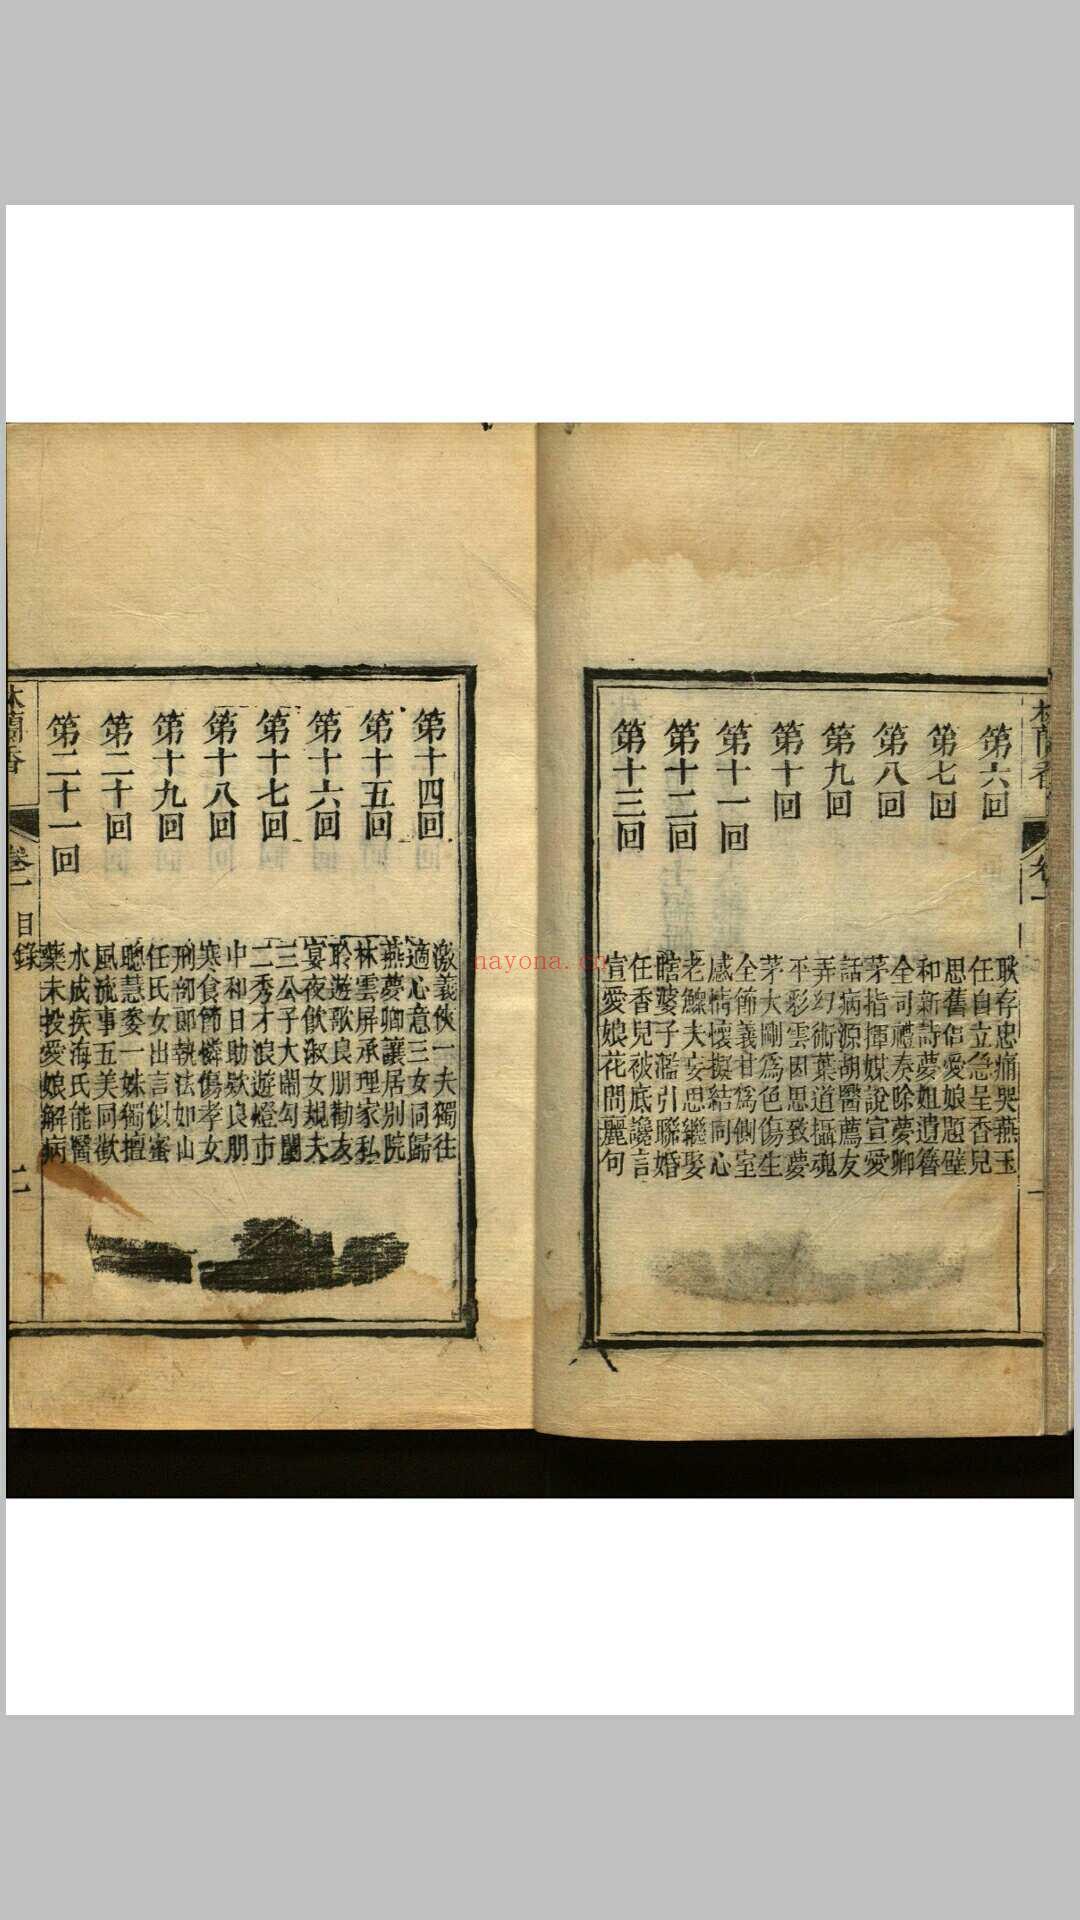 第六回
耿存忠痛哭燕玉
任自立急呈香兒
第七回
思舊侶愛娘題壁
和新詩夢姐遺簪
第八回
全司禮奏除夢卿
茅指揮媒說宣愛
第九回
話病源胡醫薦友
弄幻術葉道攝魂
第十回
平彩雲因思致夢
茅大剛爲色傷生
第十一回
全節義甘爲側室
感情懷擬結同心
第十二回
老鰥夫妄思繼娶
瞎婆子濫引聯婚
第十三回
任香兒被底讒言
宣愛娘花間麗句
第十四回
激義俠一夫獨往
適心意三女同歸
第十五回
燕夢卿讓居別院
林雲屏承理家私
第十六回
聆遊歌良朋勸友
宴夜飲淑女規夫
第十七回
三公子大鬧勾闌
二秀才浪遊燈市
第十八回
中和日助欵良朋
寒食節憐傷孝女
第十九回
刑部郎執法如山
任氏女出言似蜜
第二十回
聰慧委一姝獨擅
風流事五美同歡
第二十一回
水成疾海氏能醫
藥未投愛娘解病
林蘭香 卷一 目錄 二
nayona.cn